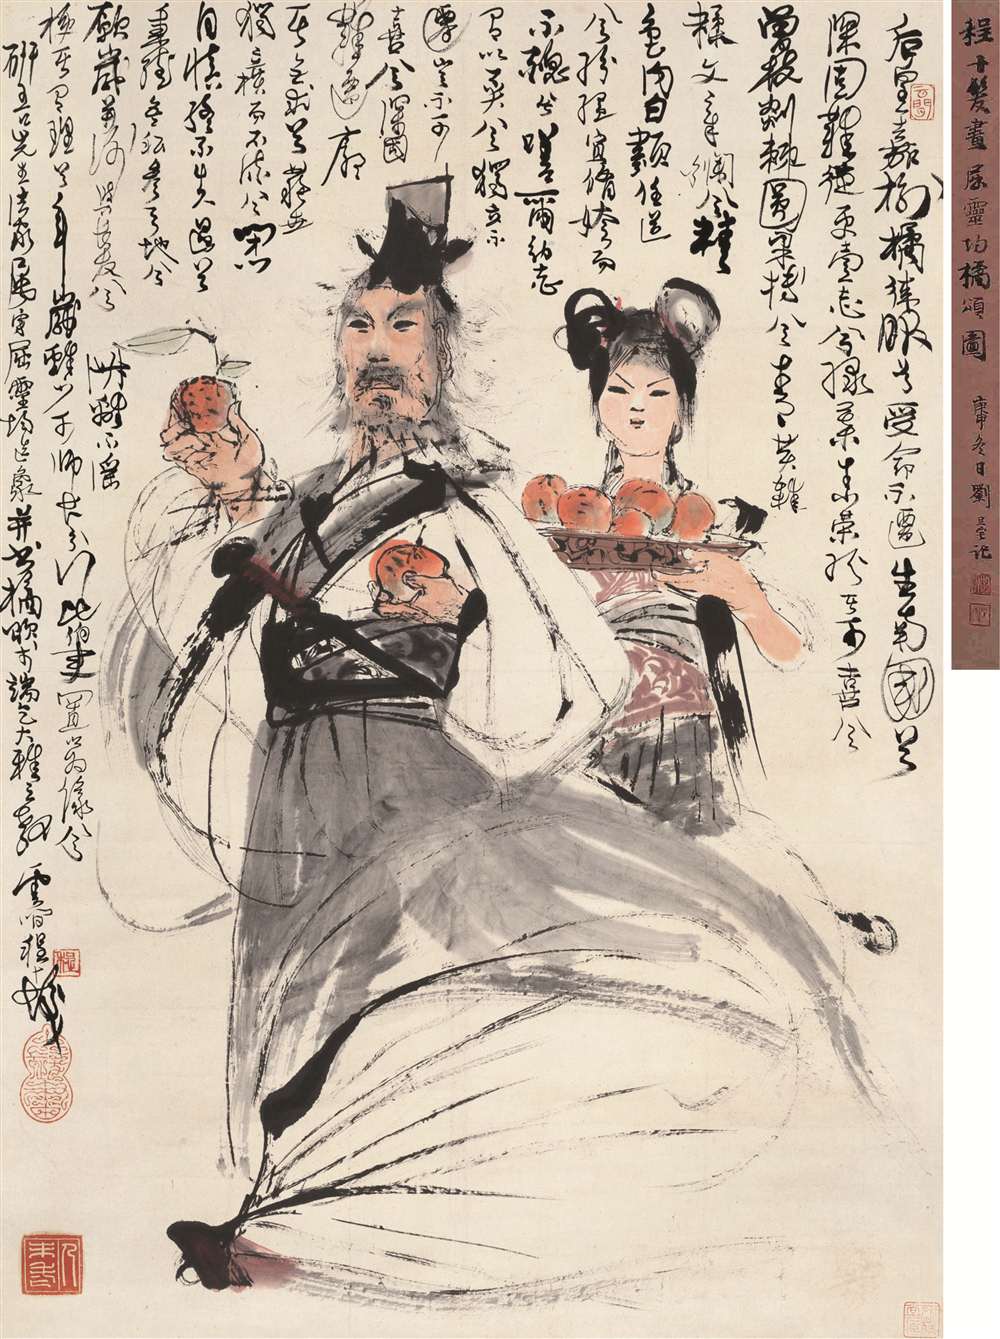 后皇嘉樹橘徠服兮受命不遷生南國兮
深固難徙更壹志兮綠葉素榮紛其可喜兮
曾枝剡棘圓果摶兮青黃雜
糅文章爛兮精
色內白類任道
兮紛縕宜脩姱而
不醜兮嗟爾幼志
有以異兮獨立不
遷豈不可
喜兮深固
難徙廓
其無求兮蘇世
獨立橫而不流兮閉心
自慎終不失過兮
秉德無私參天地兮
願歲并謝與長友兮淑離不淫
梗其有理兮年歲雖少可師長兮行比伯夷置以為像兮
研吾先生法家屬寫屈靈均造象并書橘頌大雅之教
雲間程十髮
程十髮畫屈靈均橘頌圖
庚申冬日劉旦宅記